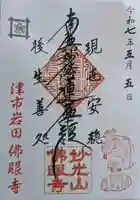 令和七年五月五日
現世安穏
南無妙法蓮華経
後生善処
妙光山
佛眼寺
津市岩田 佛眼寺